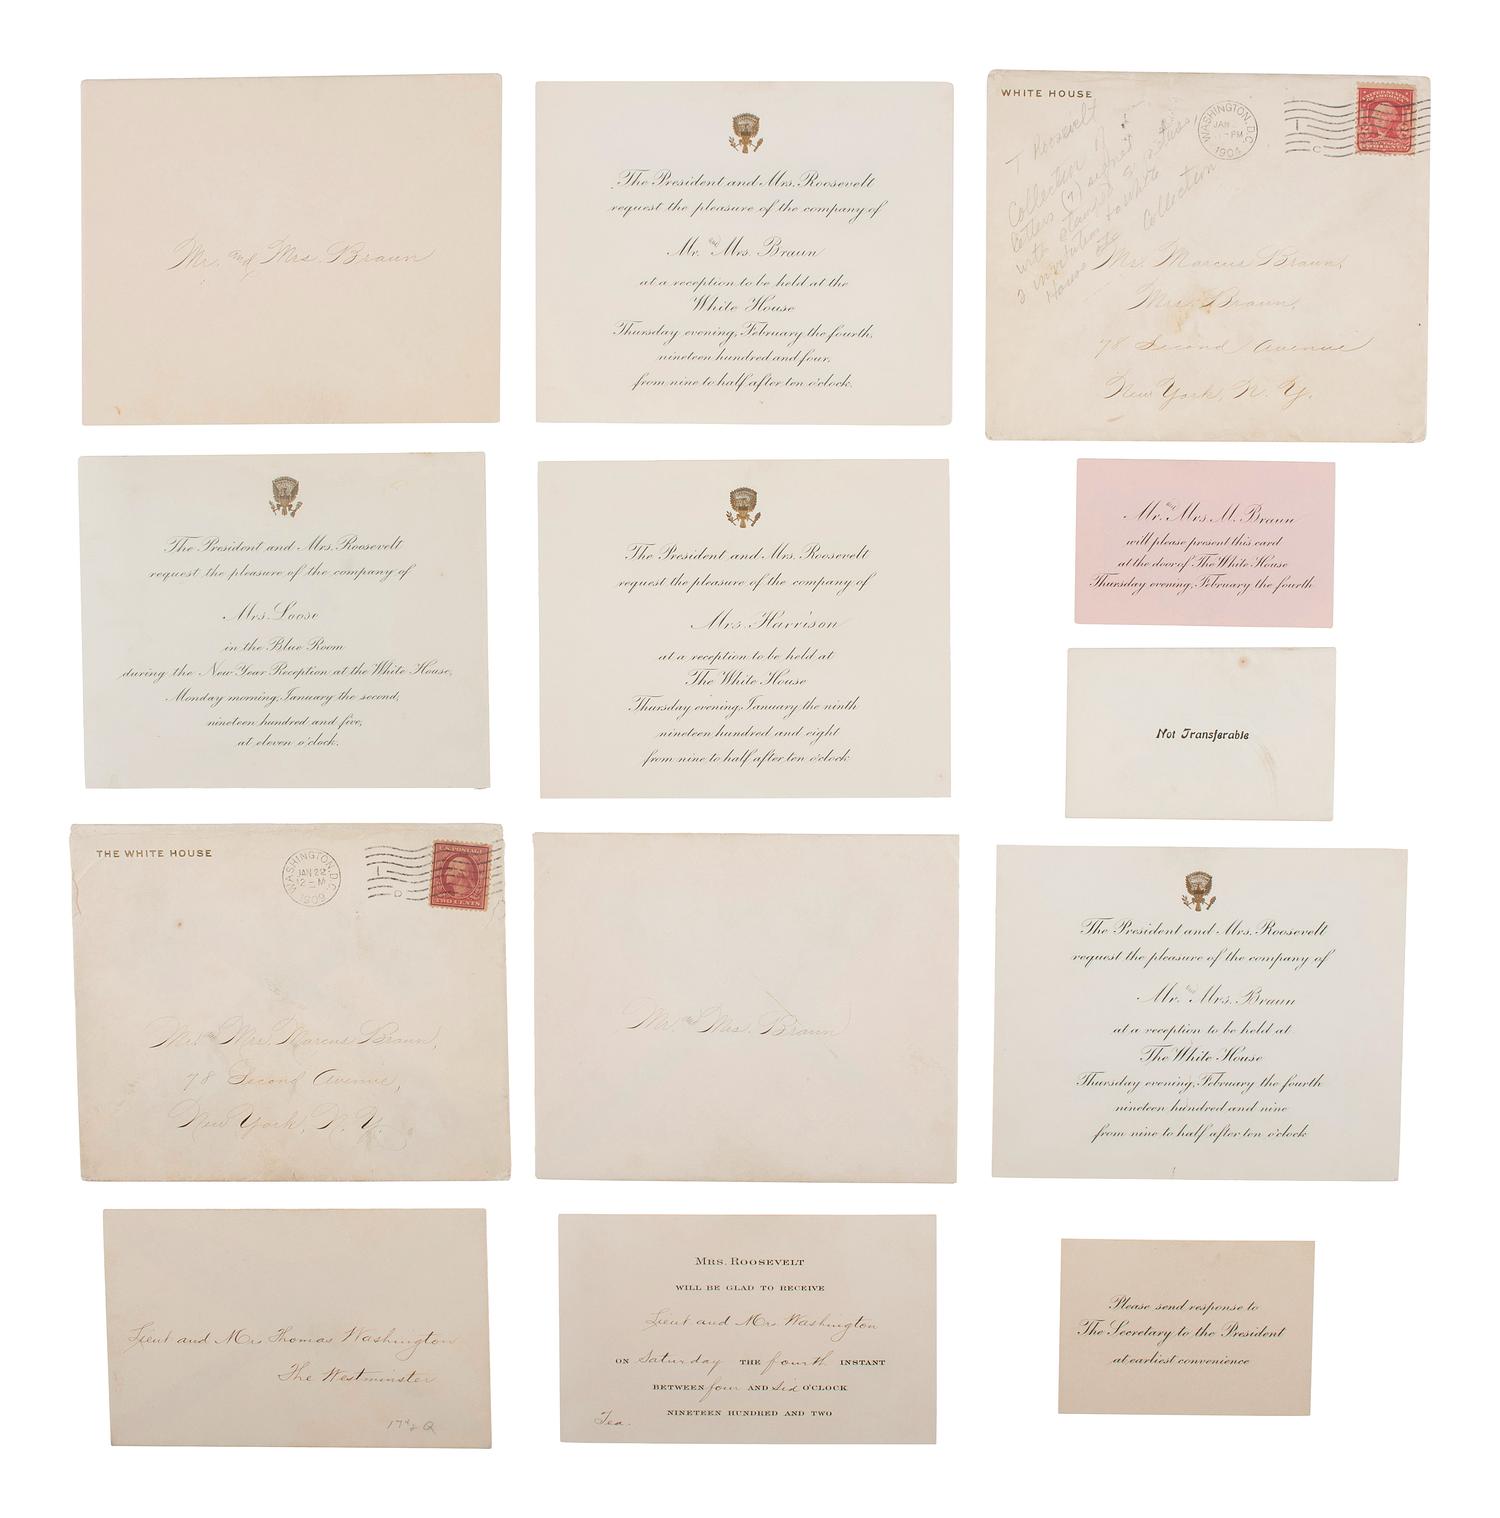 Mr. and Mrs. Braun
The President and Mrs. Roosevelt
request the pleasure of the company of
Mr. and Mrs. Braun
at a reception to be held at the
White House
Thursday evening, February the fourth,
nineteen hundred and four,
from nine to half after ten o'clock.
WHITE HOUSE
WASHINGTON, D.C.
JAN
PM
1904
I
C
T Roosevelt
Collection of
letters (7) signed
with stamped
3 invitations to White
House etc Collection
Mr. Marcus Braun,
Mrs. Braun,
78 Second Avenue
New York, N. Y.
The President and Mrs. Roosevelt
request the pleasure of the company of
Mrs. Loose
in the Blue Room
during the New Year Reception at the White House,
Monday morning, January the second,
nineteen hundred and five,
at eleven o'clock.
The President and Mrs. Roosevelt
request the pleasure of the company of
Mrs. Harrison
at a reception to be held at
The White House
Thursday evening, January the ninth
nineteen hundred and eight
from nine to half after ten o'clock
Mr. and Mrs. M. Braun
will please present this card
at the door of The White House
Thursday evening, February the fourth
Not Transferable
THE WHITE HOUSE
WASHINGTON, D.C.
JAN 22
12 - M
1909
I
D
U.S. POSTAGE
TWO CENTS
Mr. and Mrs. Marcus Braun,
78 Second Avenue,
New York, N. Y.
Mr. and Mrs. Braun
The President and Mrs. Roosevelt
request the pleasure of the company of
Mr. and Mrs. Braun
at a reception to be held at
The White House
Thursday evening, February the fourth
nineteen hundred and nine
from nine to half after ten o'clock
Lieut and Mrs Thomas Washington
The Westminster
17th & Q
MRS. ROOSEVELT
WILL BE GLAD TO RECEIVE
Lieut and Mrs Washington
ON Saturday THE fourth INSTANT
BETWEEN four AND six O'CLOCK
NINETEEN HUNDRED AND TWO
Tea.
Please send response to
The Secretary to the President
at earliest convenience